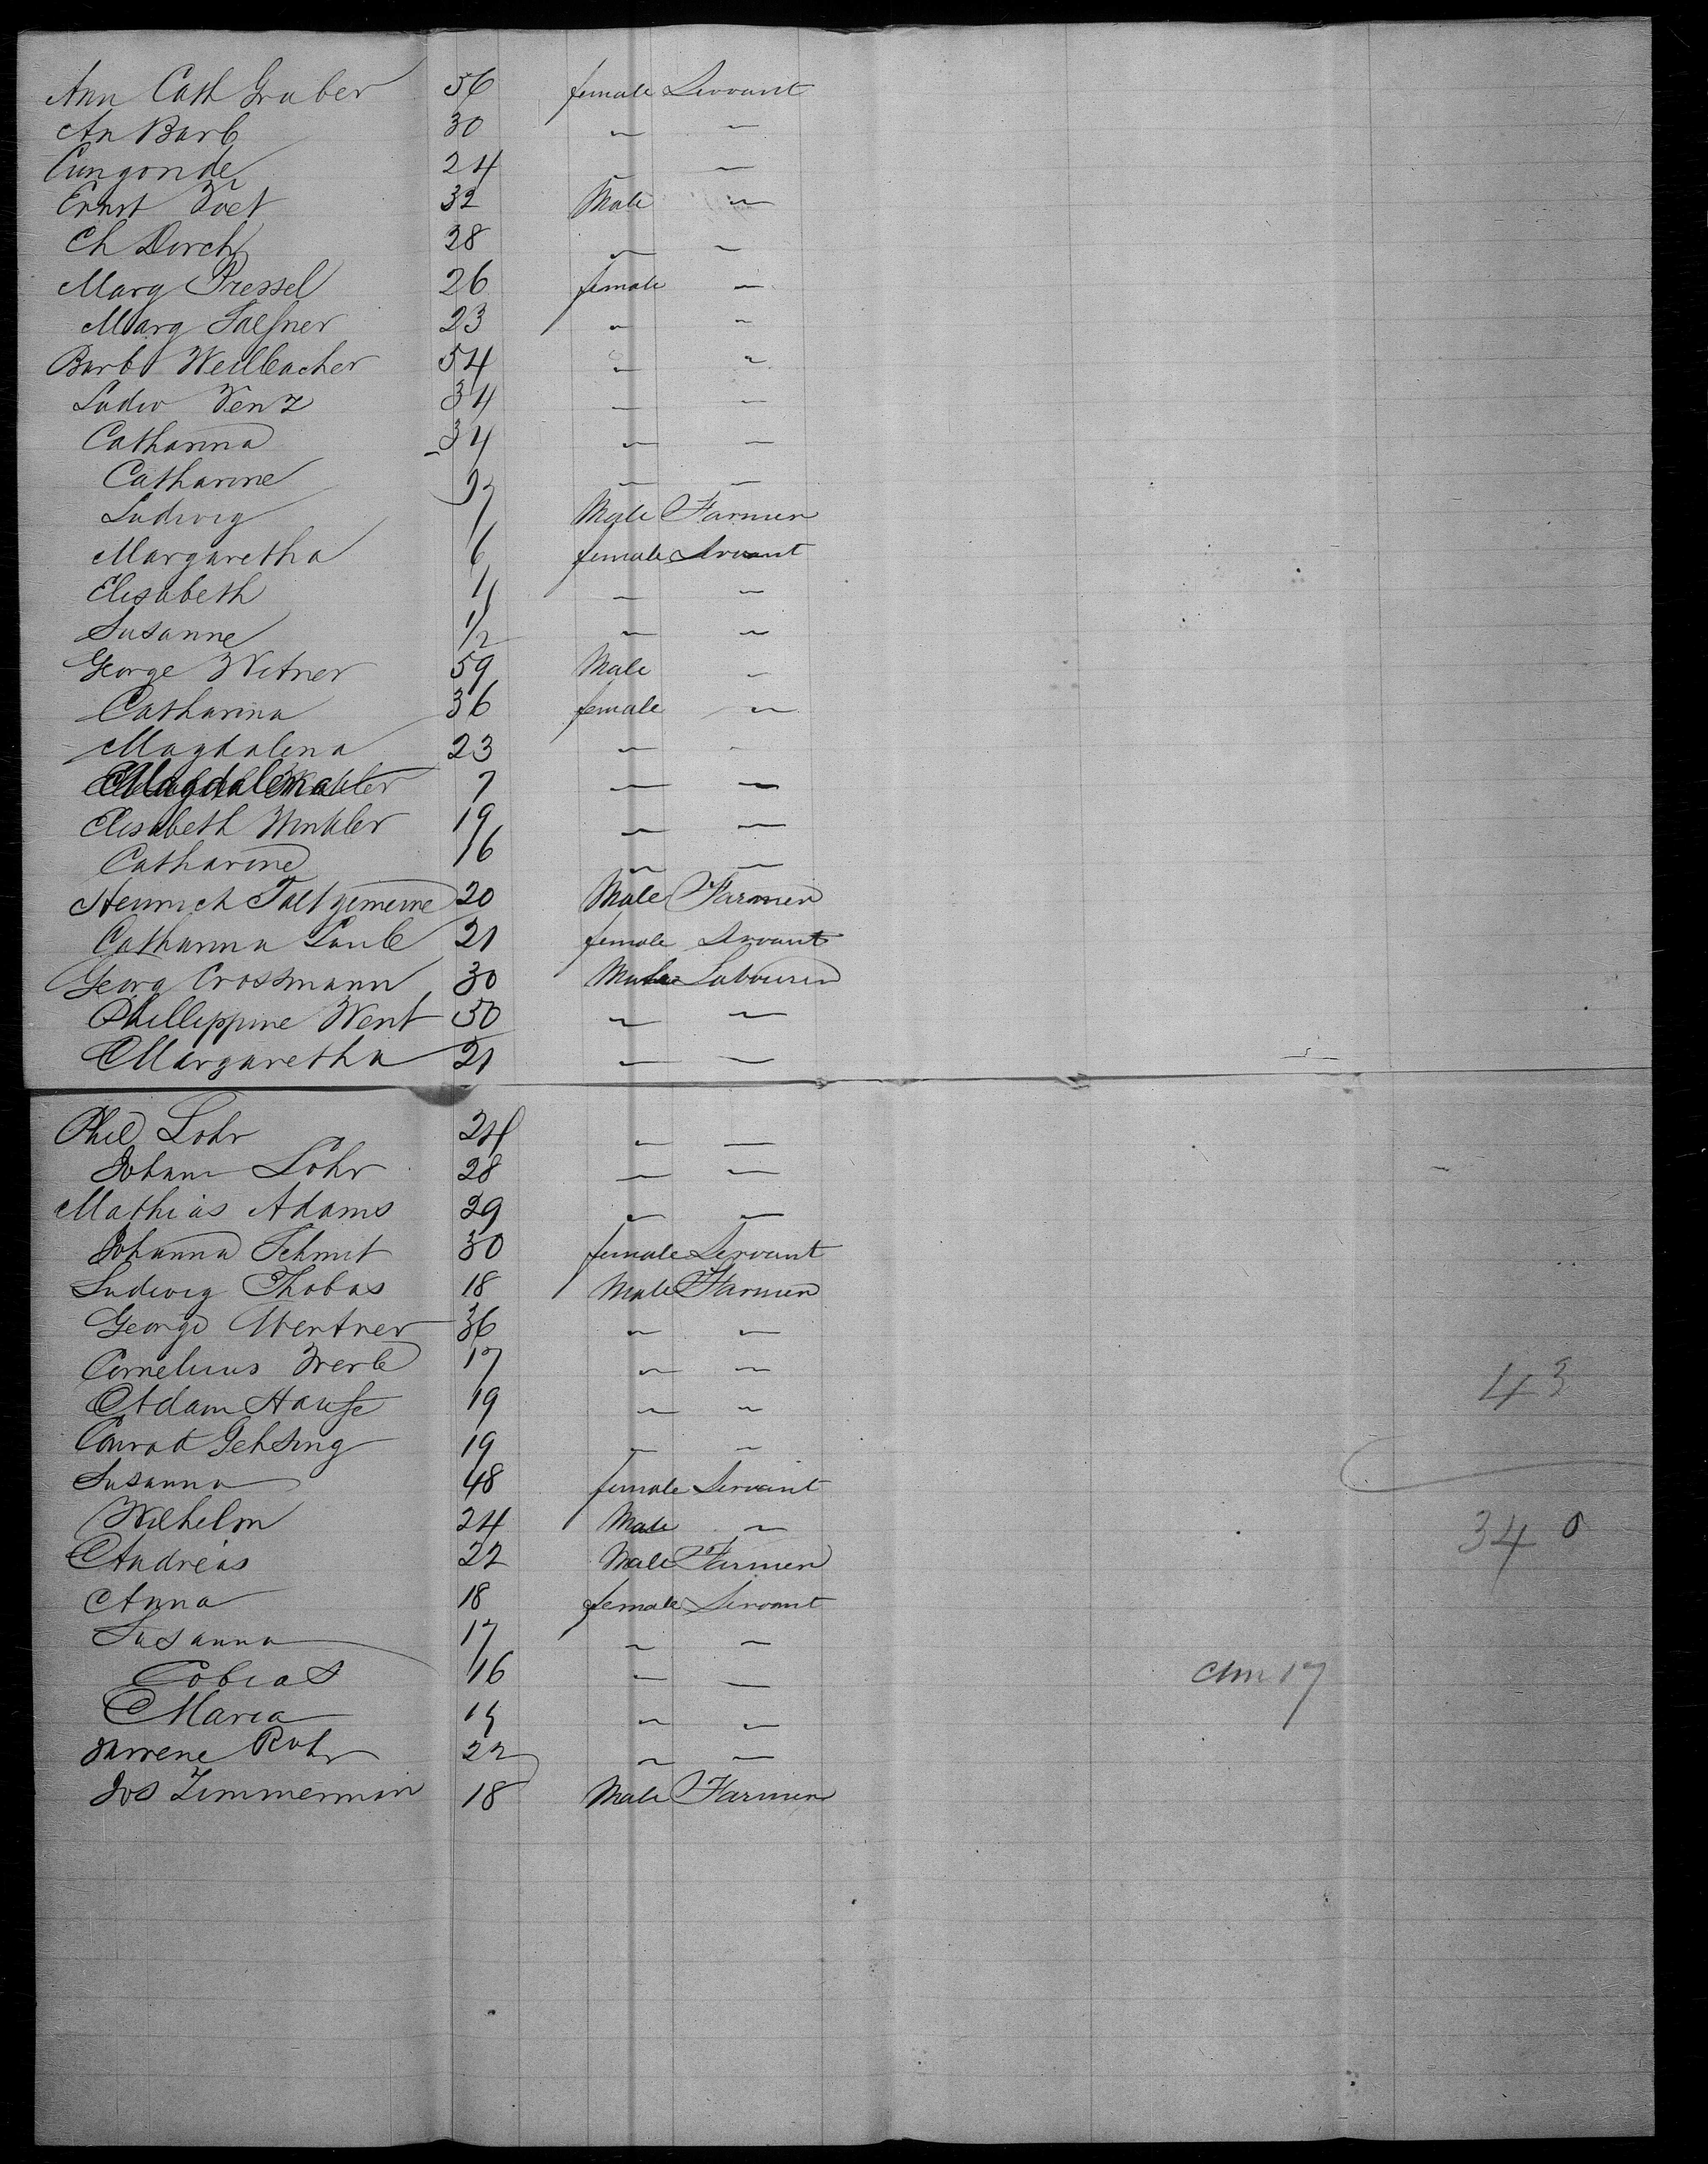 Ann Cath Gruber 56 female Servant
An Barb 30 ~ ~
Cungonde 24 ~ ~
Ernst Voet 32 Male ~
Ch Dorch 28 ~ ~
Marg Pressel 26 female ~
Marg 23 ~ ~
Barb Weilbacher 54 ~ ~
Ludw Venz 34 ~ ~
Catharina 34 ~ ~
Catharine ~ ~
Ludwig Male Farmer
Margaretha 6 female Servant
Elisabeth ~ ~
Susanne 1/2 ~ ~
George Witner 59 Male ~
Catharina 36 female ~
Magdalena 23 ~ ~
7 ~ ~
Elisabeth Winkler 19 ~ ~
Catharine 16 ~ ~
Heinrich 20 Male Farmer
Catharina Laub 21 female Servant
Georg Crossmann 30 Male Labourer
Phillippine Went 50 ~ ~
Margaretha 21 ~ ~
Phil Lohr 24 ~ ~
Johann Lohr 28 ~ ~
Mathias Adams 29 ~ ~
Johanna Schmit 30 female Servant
Ludwig Thobas 18 Male Farmer
George Wertner 36 ~ ~
Cornelius Werle 17 ~ ~
Adam Hauße 19 ~ ~
Conrad Gehsing 19 ~ ~
Susanna 48 female Servant
Wilhelm 24 Male ~
Andreas 22 Male Farmer
Anna 18 female Servant
Susanna 17 ~ ~
Tobias 16 ~ ~
Maria 15 ~ ~
Rohr 22 ~ ~
Jos Zimmerman 18 Male Farmer
43
34 0
17